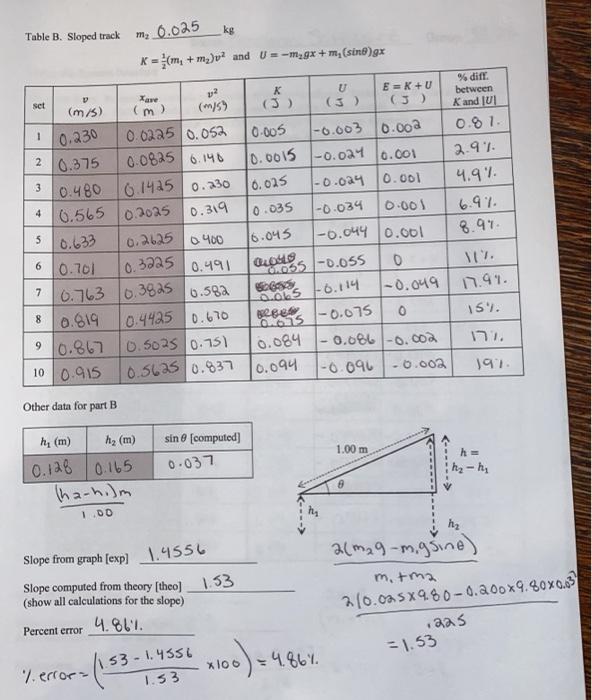 Table B. Sloped track m₂ 0.025 kg
K = ½(m₁ + m₂)v² and U = −m₂gx + m₁(sinθ)gx
set v (m/s) xave (m) v² (m/s)² K (J) U (J) E = K + U (J) % diff. between K and |U|
1 0.230 0.0225 0.052 0.005 -0.003 0.002 0.8%
2 0.375 0.0825 0.140 0.0015 -0.024 0.001 2.9%
3 0.480 0.1425 0.230 0.025 -0.024 0.001 4.9%
4 0.565 0.2025 0.319 0.035 -0.034 0.001 6.9%
5 0.633 0.2625 0.400 0.045 -0.044 0.001 8.9%
6 0.701 0.3225 0.491 0.055 -0.055 0 11%
7 0.763 0.3825 0.582 0.065 -0.114 -0.049 17.9%
8 0.819 0.4425 0.670 0.075 -0.075 0 15%
9 0.867 0.5025 0.751 0.084 -0.086 -0.002 17%
10 0.915 0.5625 0.837 0.094 -0.096 -0.002 19%
Other data for part B
h₁ (m) h₂ (m) sin θ [computed]
0.128 0.165 0.037
(h2-h1)m
1.00
1.00 m
θ
h =
h₂ − h₁
h₁
h₂
Slope from graph [exp] 1.4556
Slope computed from theory [theo] 1.53
(show all calculations for the slope)
Percent error 4.86%
% error = (1.53 - 1.4556 / 1.53 x100) = 4.86%
2(m2g-m1gsinθ)
m1+m2
2(0.025x9.80-0.200x9.80x0.037
.225
=1.53